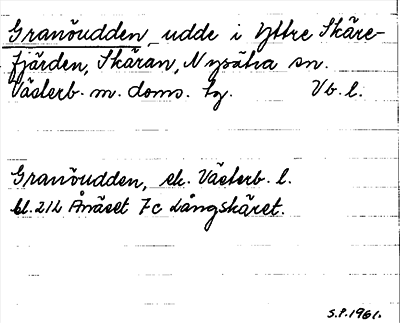 Granöudden, udde i Yttre Skäre-
fjärden, Skäran, Nysätra sn.
Västerb. m. doms. tg. Vb. l.
Granöudden, ek. Västerb. l.
bl. 212 Ånäset 7c Långskäret.
S.P. 1961.